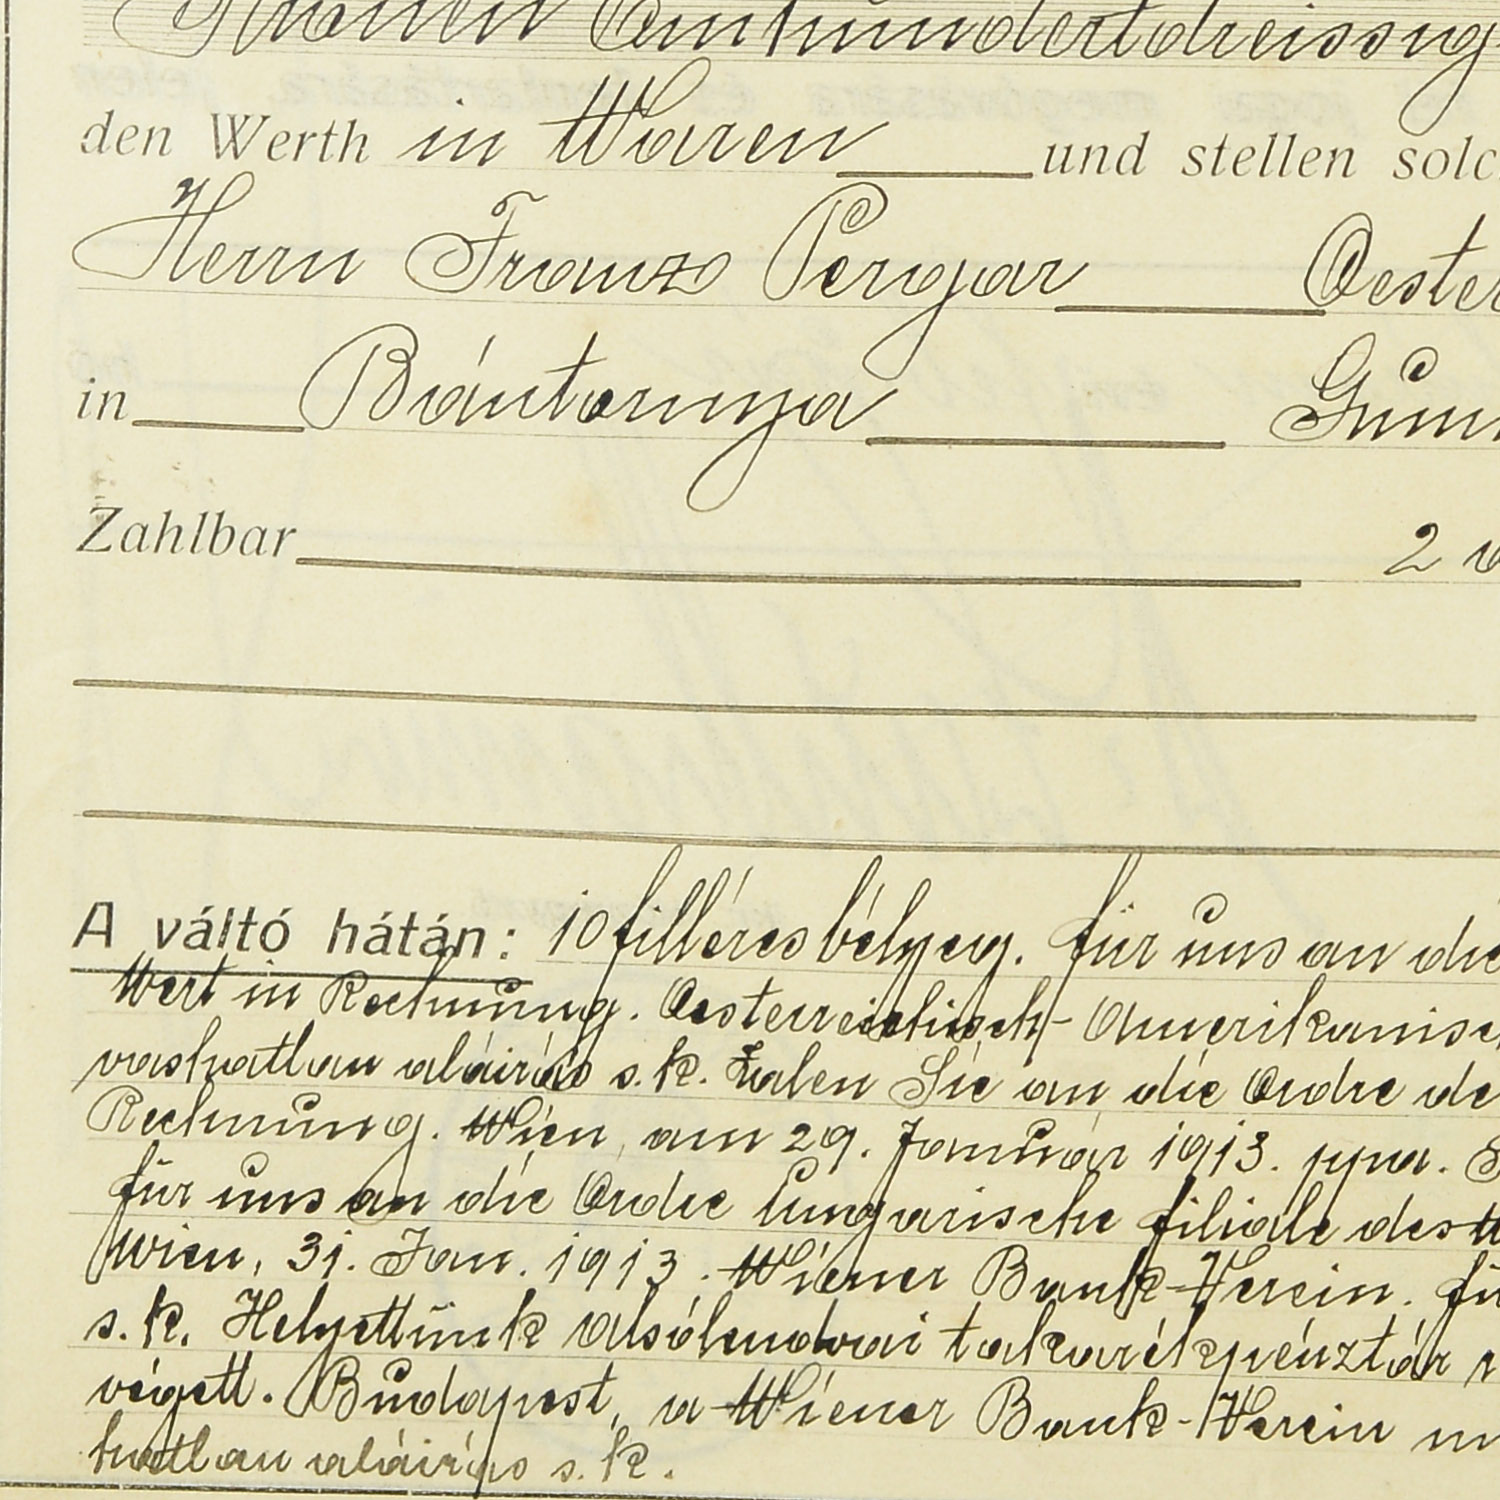 Kronen Einhundertdreissig
den Werth in Waren und stellen solc
Herrn Franz Pergar Oester
in Bántornya Gum
Zahlbar 2
A váltó hátán: 10 filléres bélyeg. für uns an die
Wert in Rechnung. Oesterreichisch-Amerikanisc
vashatlan aláirás s.k. Zalen Sie an die Ordre de
Rechnung. Wien, am 29. Januar 1913. ppa. S
für uns an die Ordre Ungarische filiale des W
Wien, 31. Jan. 1913. Wiener Bank-Verein. fü
s.k. Helyettünk alsólendvai takarékpénztár
végett. Budapest, a Wiener Bank-Verein m
hatlan aláirás s.k.